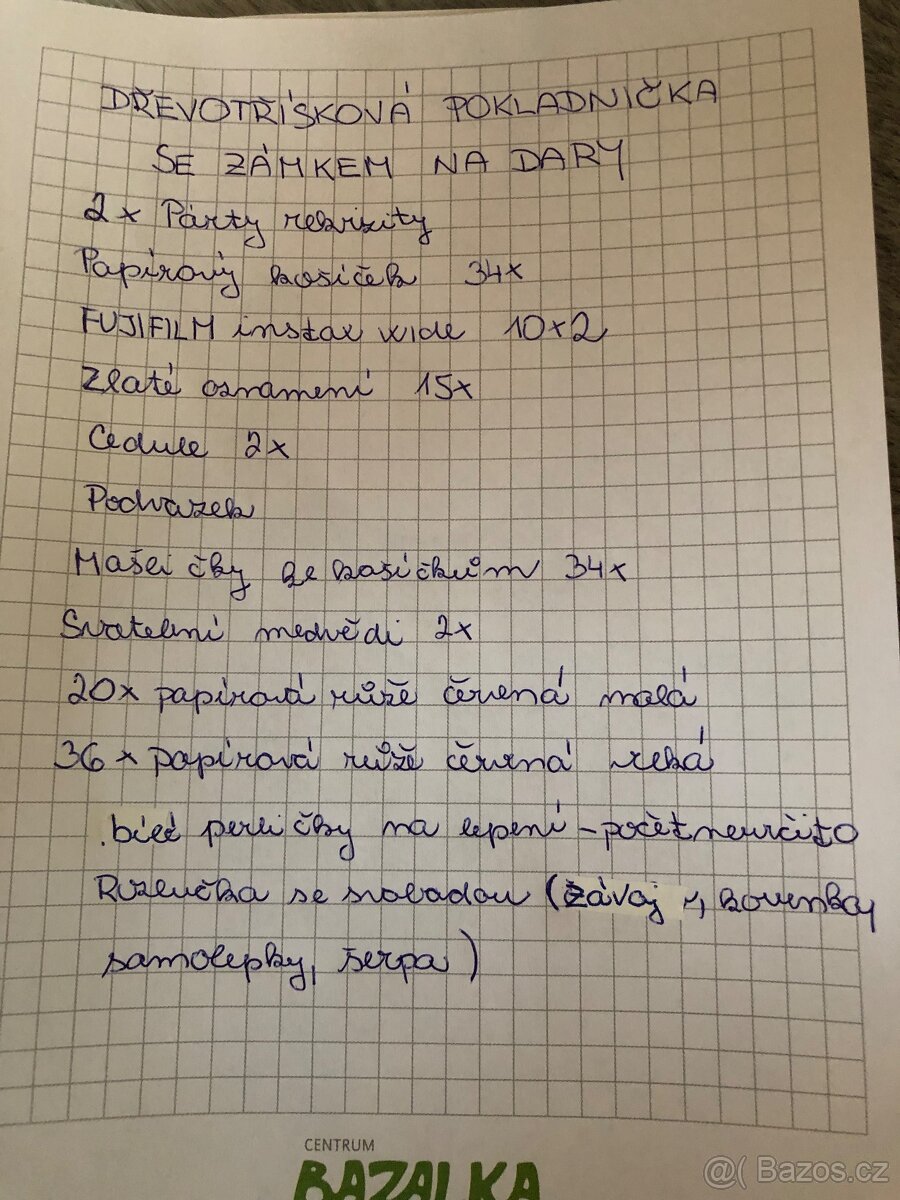 DŘEVOTŘÍSKOVÁ POKLADNIČKA
SE ZÁMKEM NA DARY
2x Párty rekvizity
Papírový košíček 34x
FUJIFILM instax wide 10x2
Zlaté oznamení 15x
Cedule 2x
Podvazek
Mašličky ke košíčkům 34x
Svatební medvědi 2x
20x papírová růže červená malá
36x papírová růže červená velká
bílé perličky na lepení - počet neurčito
Rozlučka se svobodou (závoj, korunka,
samolepky, šerpa)
CENTRUM
BAZALKA
@( Bazos.cz